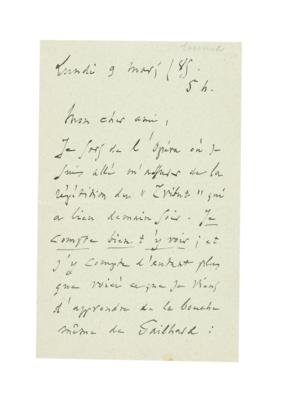 Lundi 9 mars / 85.
5 h.
Mon cher ami,
Je sors de l'Opéra où je
suis allé m'assurer de la
répétition du "Tribut" qui
a lieu demain soir. Je
compte bien t'y voir ; et
j'y compte d'autant plus
que voici ce que je viens
d'apprendre de la bouche
même de Gailhard :